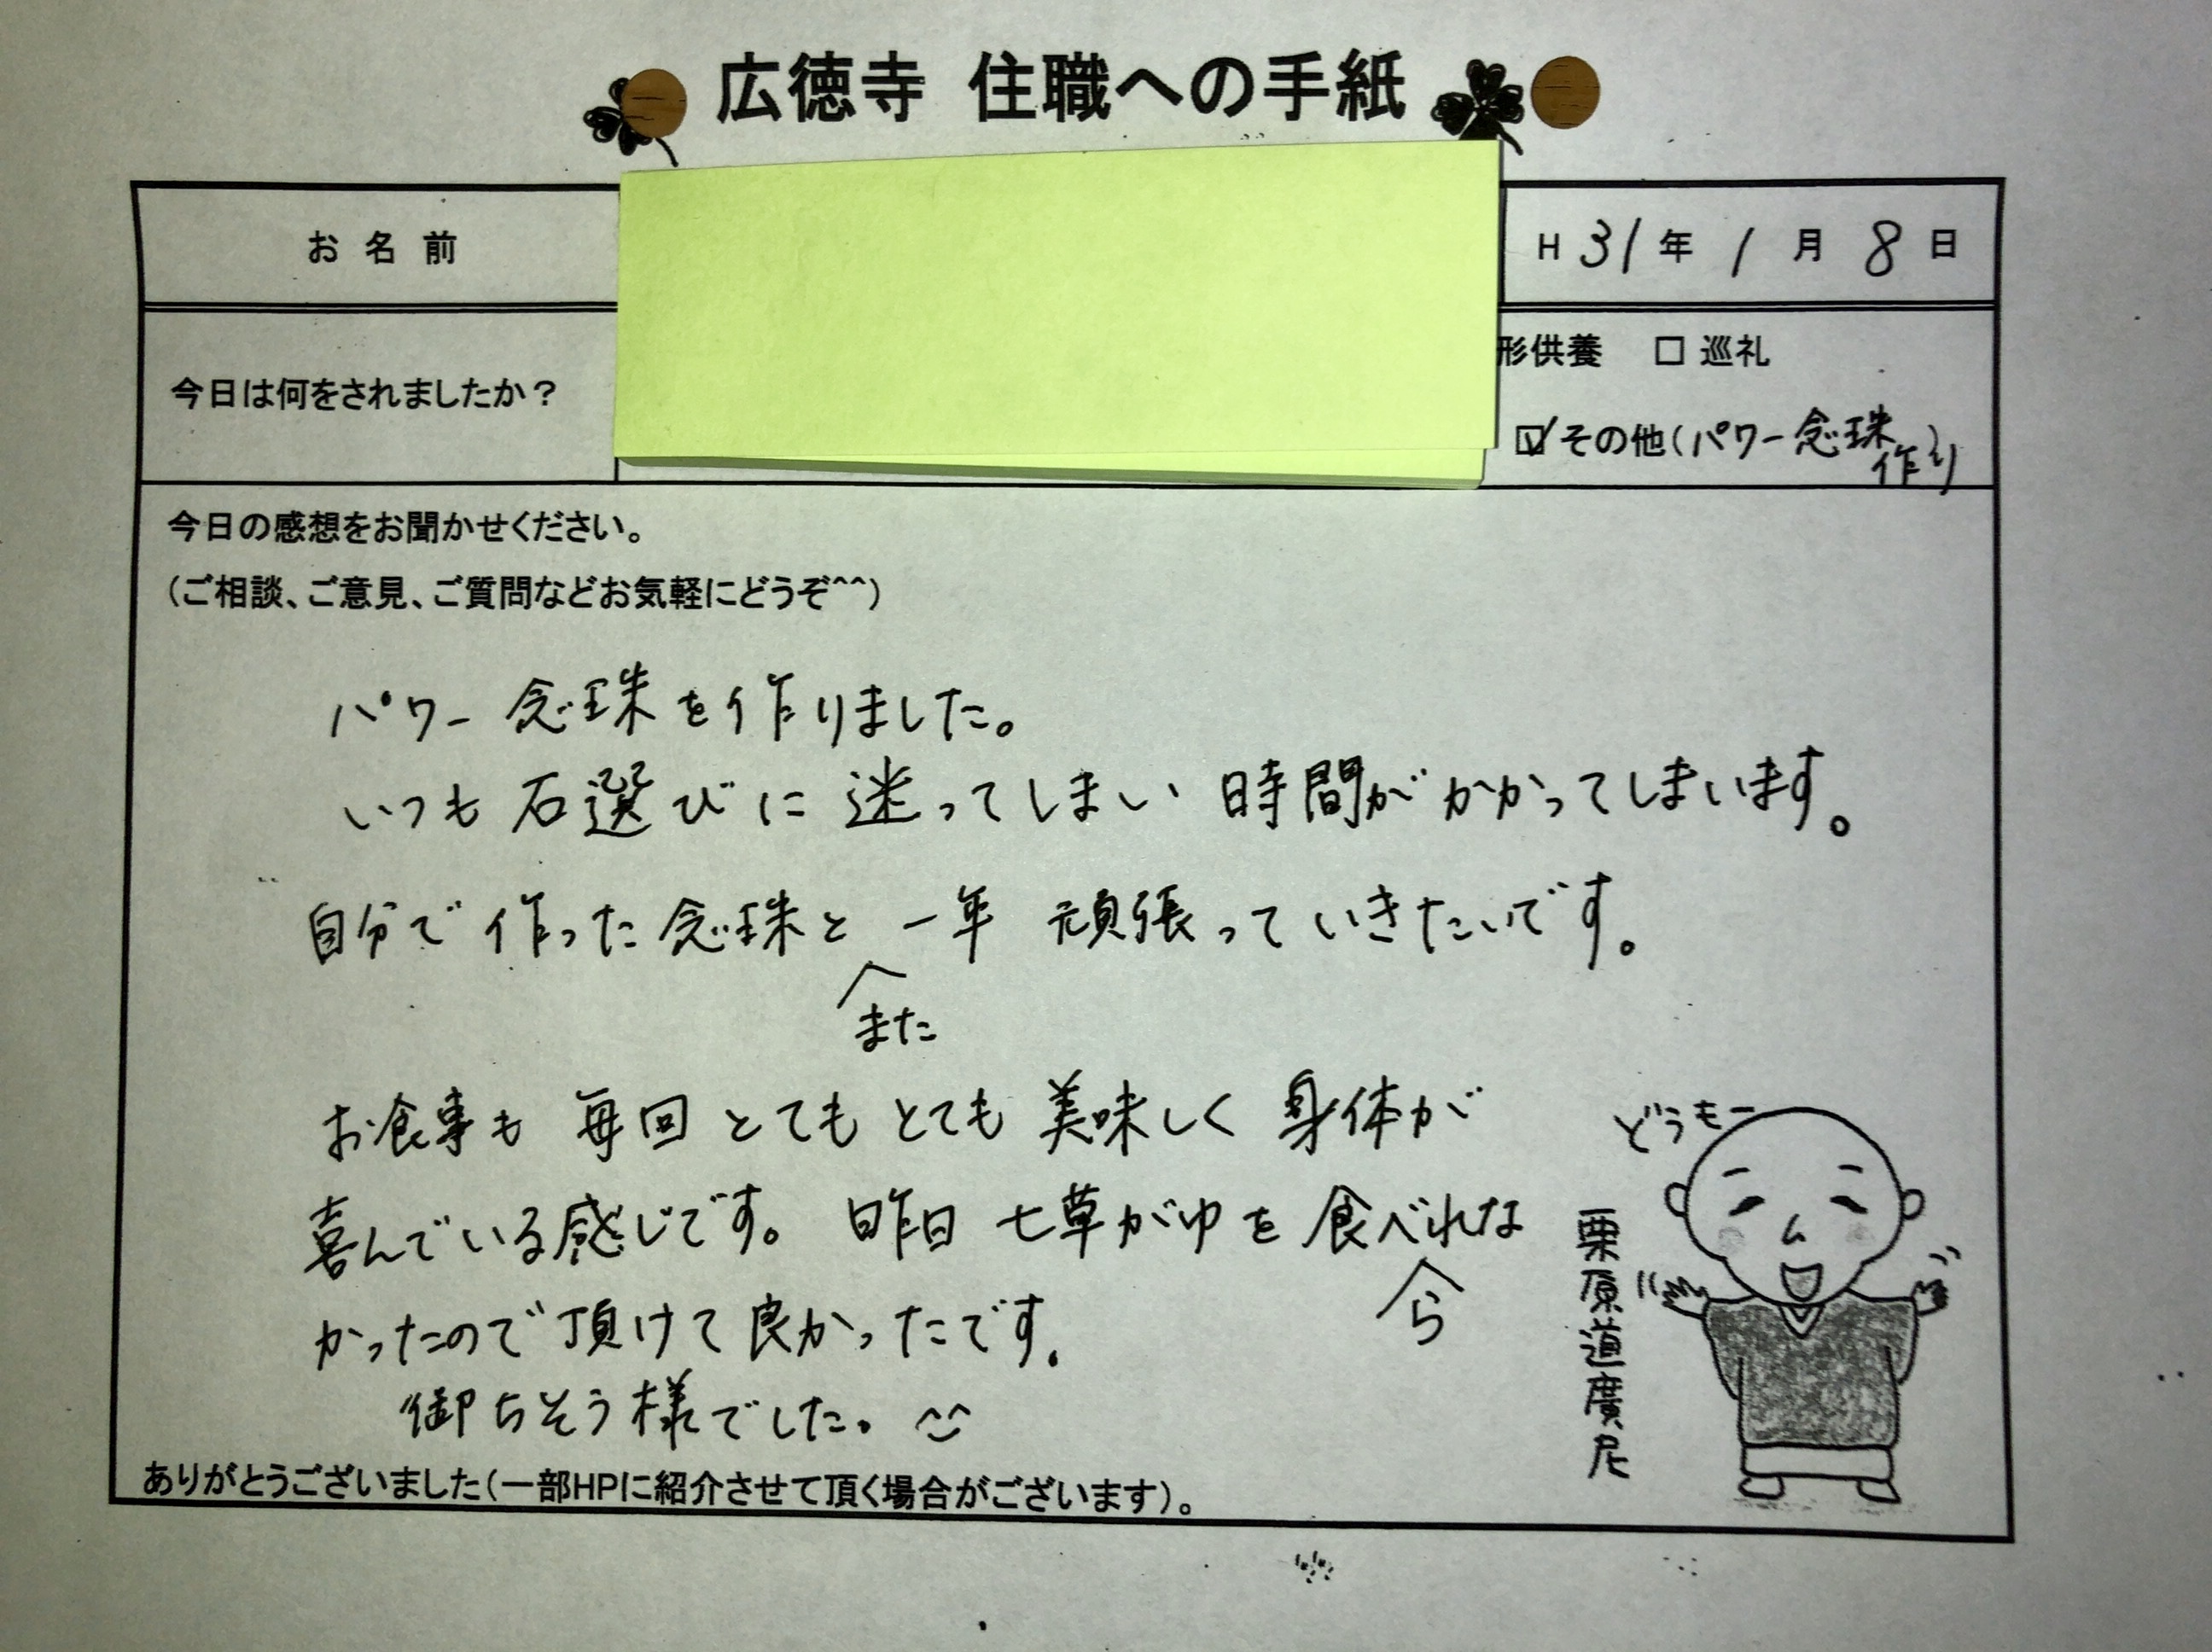 広徳寺 住職への手紙
お名前
H 31年 1月 8日
今日は何をされましたか？
形供養 □ 巡礼
☑ その他(パワー念珠作り)
今日の感想をお聞かせください。
(ご相談、ご意見、ご質問などお気軽にどうぞ^^)
パワー念珠を作りました。
いつも石選びに迷ってしまい時間がかかってしまいます。
自分で作った念珠と一年頑張っていきたいです。
また
お食事も毎回とてもとても美味しく身体が
喜んでいる感じです。昨日七草がゆを食べれな
ら
かったので頂けて良かったです。
御ちそう様でした。^^
どうもー
栗原道廣尼
ありがとうございました(一部HPに紹介させて頂く場合がございます)。